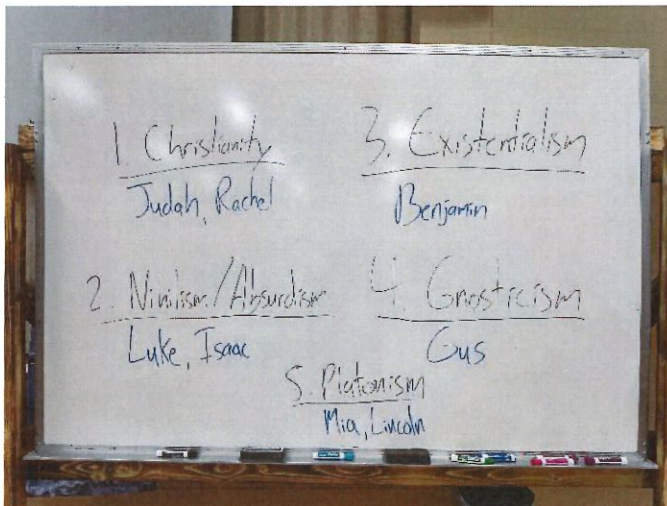 1. Christianity
Judah, Rachel
2. Nihilism/Absurdism
Luke, Isaac
3. Existentialism
Benjamin
4. Gnosticism
Gus
5. Platonism
Mia, Lincoln